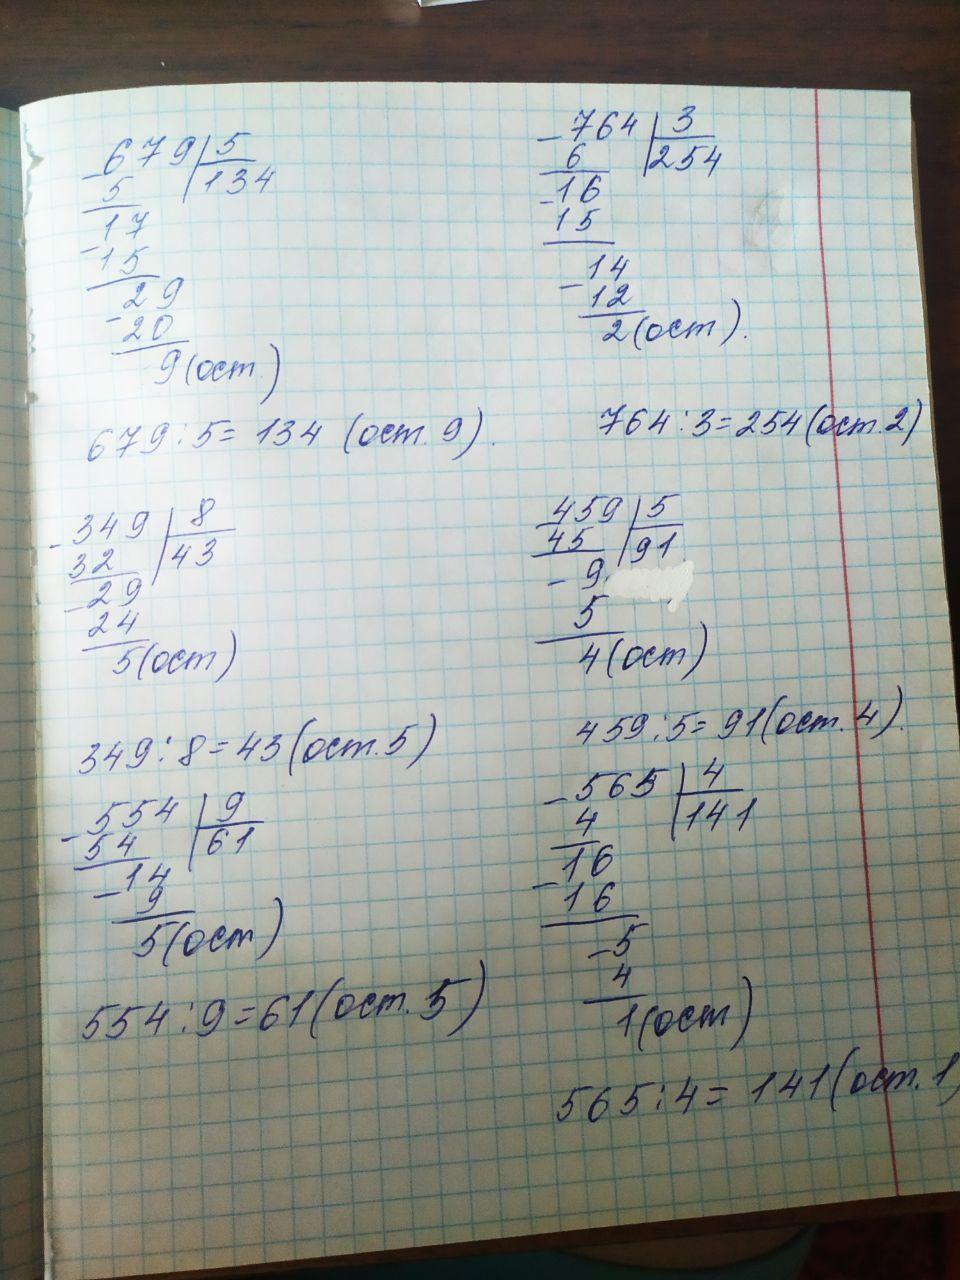 679 | 5
5 134
17
15
29
20
9 (ост.)
679 : 5 = 134 (ост. 9).
764 | 3
6 254
16
15
14
12
2 (ост).
764 : 3 = 254 (ост. 2)
349 | 8
32 43
29
24
5 (ост)
349 : 8 = 43 (ост. 5)
459 | 5
45 91
9
5
4 (ост)
459 : 5 = 91 (ост. 4).
554 | 9
54 61
14
9
5 (ост)
554 : 9 = 61 (ост. 5)
565 | 4
4 141
16
16
5
4
1 (ост)
565 : 4 = 141 (ост. 1)